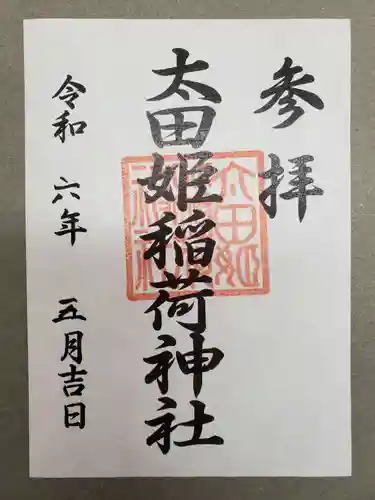 参拝
太田姫稲荷神社
令和 六年 五月吉日